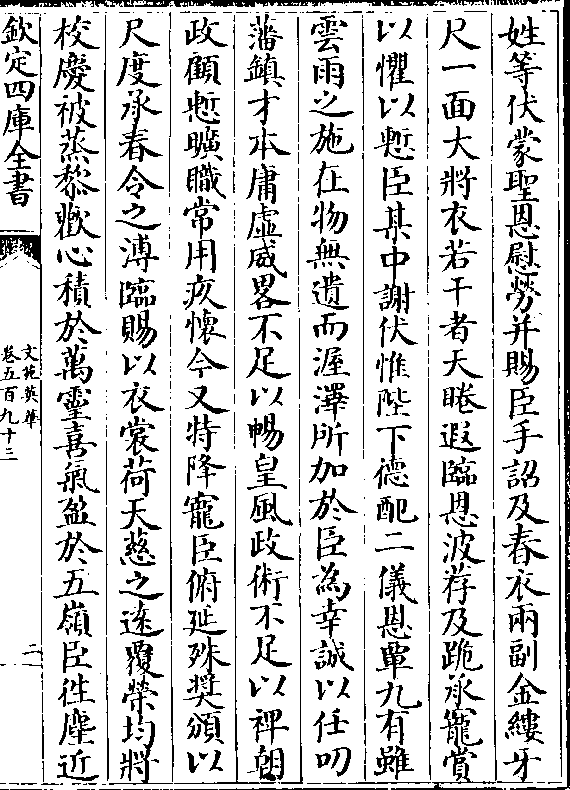 姓等伏蒙聖恩慰勞并賜臣手詔及春衣兩副金縷牙
尺一面大將衣若干者天睠遐臨恩波荐及跪承寵賞
以懼以慙臣某中謝伏惟陛下德配二儀恩覃九有雖
雲雨之施在物無遺而渥澤所加於臣為幸誠以任叨
藩鎮才本庸虛威畧不足以暢皇風政術不足以裨朝
政顧慙曠職常用疚懷今又特降寵臣俯延殊奨頒以
尺度承春令之溥臨賜以衣裳荷天慈之逺覆榮均將
校慶被蒸黎歡心積於萬靈喜氣盈於五嶺臣徃塵近
欽定四庫全書
文苑英華
卷五百九十三
二